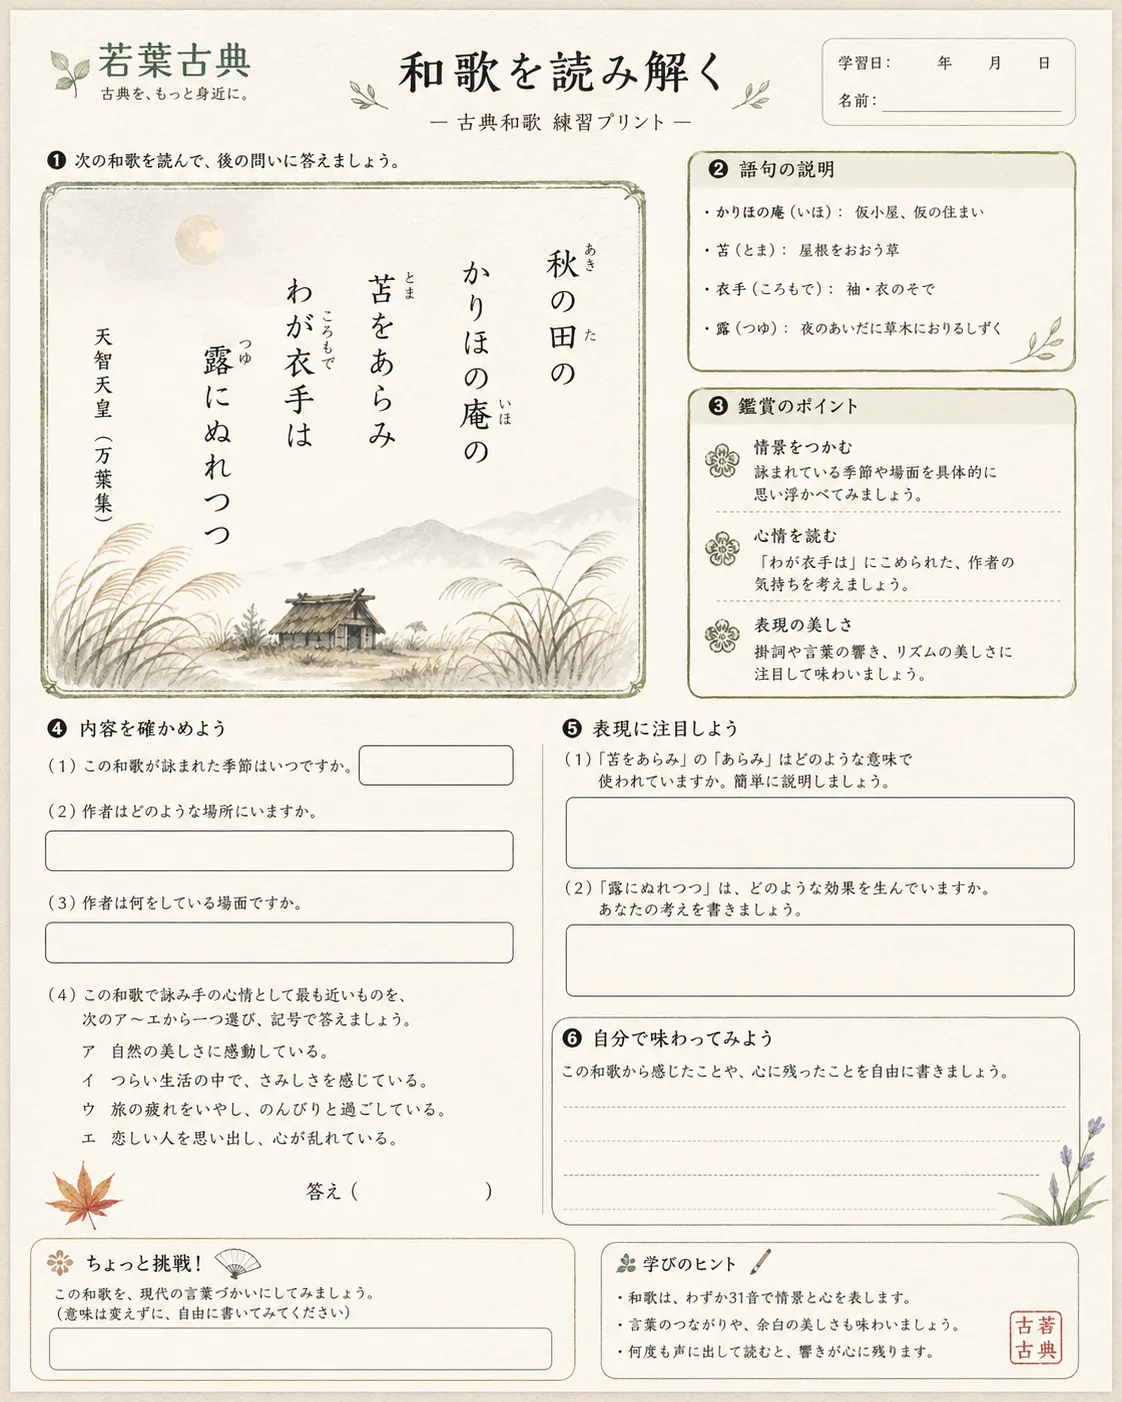 若葉古典
古典を、もっと身近に。
和歌を読み解く
― 古典和歌 練習プリント ―
学習日： 年 月 日
名前：
❶ 次の和歌を読んで、後の問いに答えましょう。
秋の田の
あき
た
かりほの庵の
いほ
苫をあらみ
とま
わが衣手は
ころもで
露にぬれつつ
つゆ
天智天皇（万葉集）
❷ 語句の説明
・かりほの庵（いほ）： 仮小屋、仮の住まい
・苫（とま）： 屋根をおおう草
・衣手（ころもで）： 袖・衣のそで
・露（つゆ）： 夜のあいだに草木におりるしずく
❸ 鑑賞のポイント
情景をつかむ
詠まれている季節や場面を具体的に
思い浮かべてみましょう。
心情を読む
「わが衣手は」にこめられた、作者の
気持ちを考えましょう。
表現の美しさ
掛詞や言葉の響き、リズムの美しさに
注目して味わいましょう。
❹ 内容を確かめよう
（1）この和歌が詠まれた季節はいつですか。
（2）作者はどのような場所にいますか。
（3）作者は何をしている場面ですか。
（4）この和歌で詠み手の心情として最も近いものを、
次のア～エから一つ選び、記号で答えましょう。
ア 自然の美しさに感動している。
イ つらい生活の中で、さみしさを感じている。
ウ 旅の疲れをいやし、のんびりと過ごしている。
エ 恋しい人を思い出し、心が乱れている。
答え（ ）
❺ 表現に注目しよう
（1）「苫をあらみ」の「あらみ」はどのような意味で
使われていますか。簡単に説明しましょう。
（2）「露にぬれつつ」は、どのような効果を生んでいますか。
あなたの考えを書きましょう。
❻ 自分で味わってみよう
この和歌から感じたことや、心に残ったことを自由に書きましょう。
ちょっと挑戦！
この和歌を、現代の言葉づかいにしてみましょう。
（意味は変えずに、自由に書いてみてください）
学びのヒント
・和歌は、わずか31音で情景と心を表します。
・言葉のつながりや、余白の美しさも味わいましょう。
・何度も声に出して読むと、響きが心に残ります。
古典